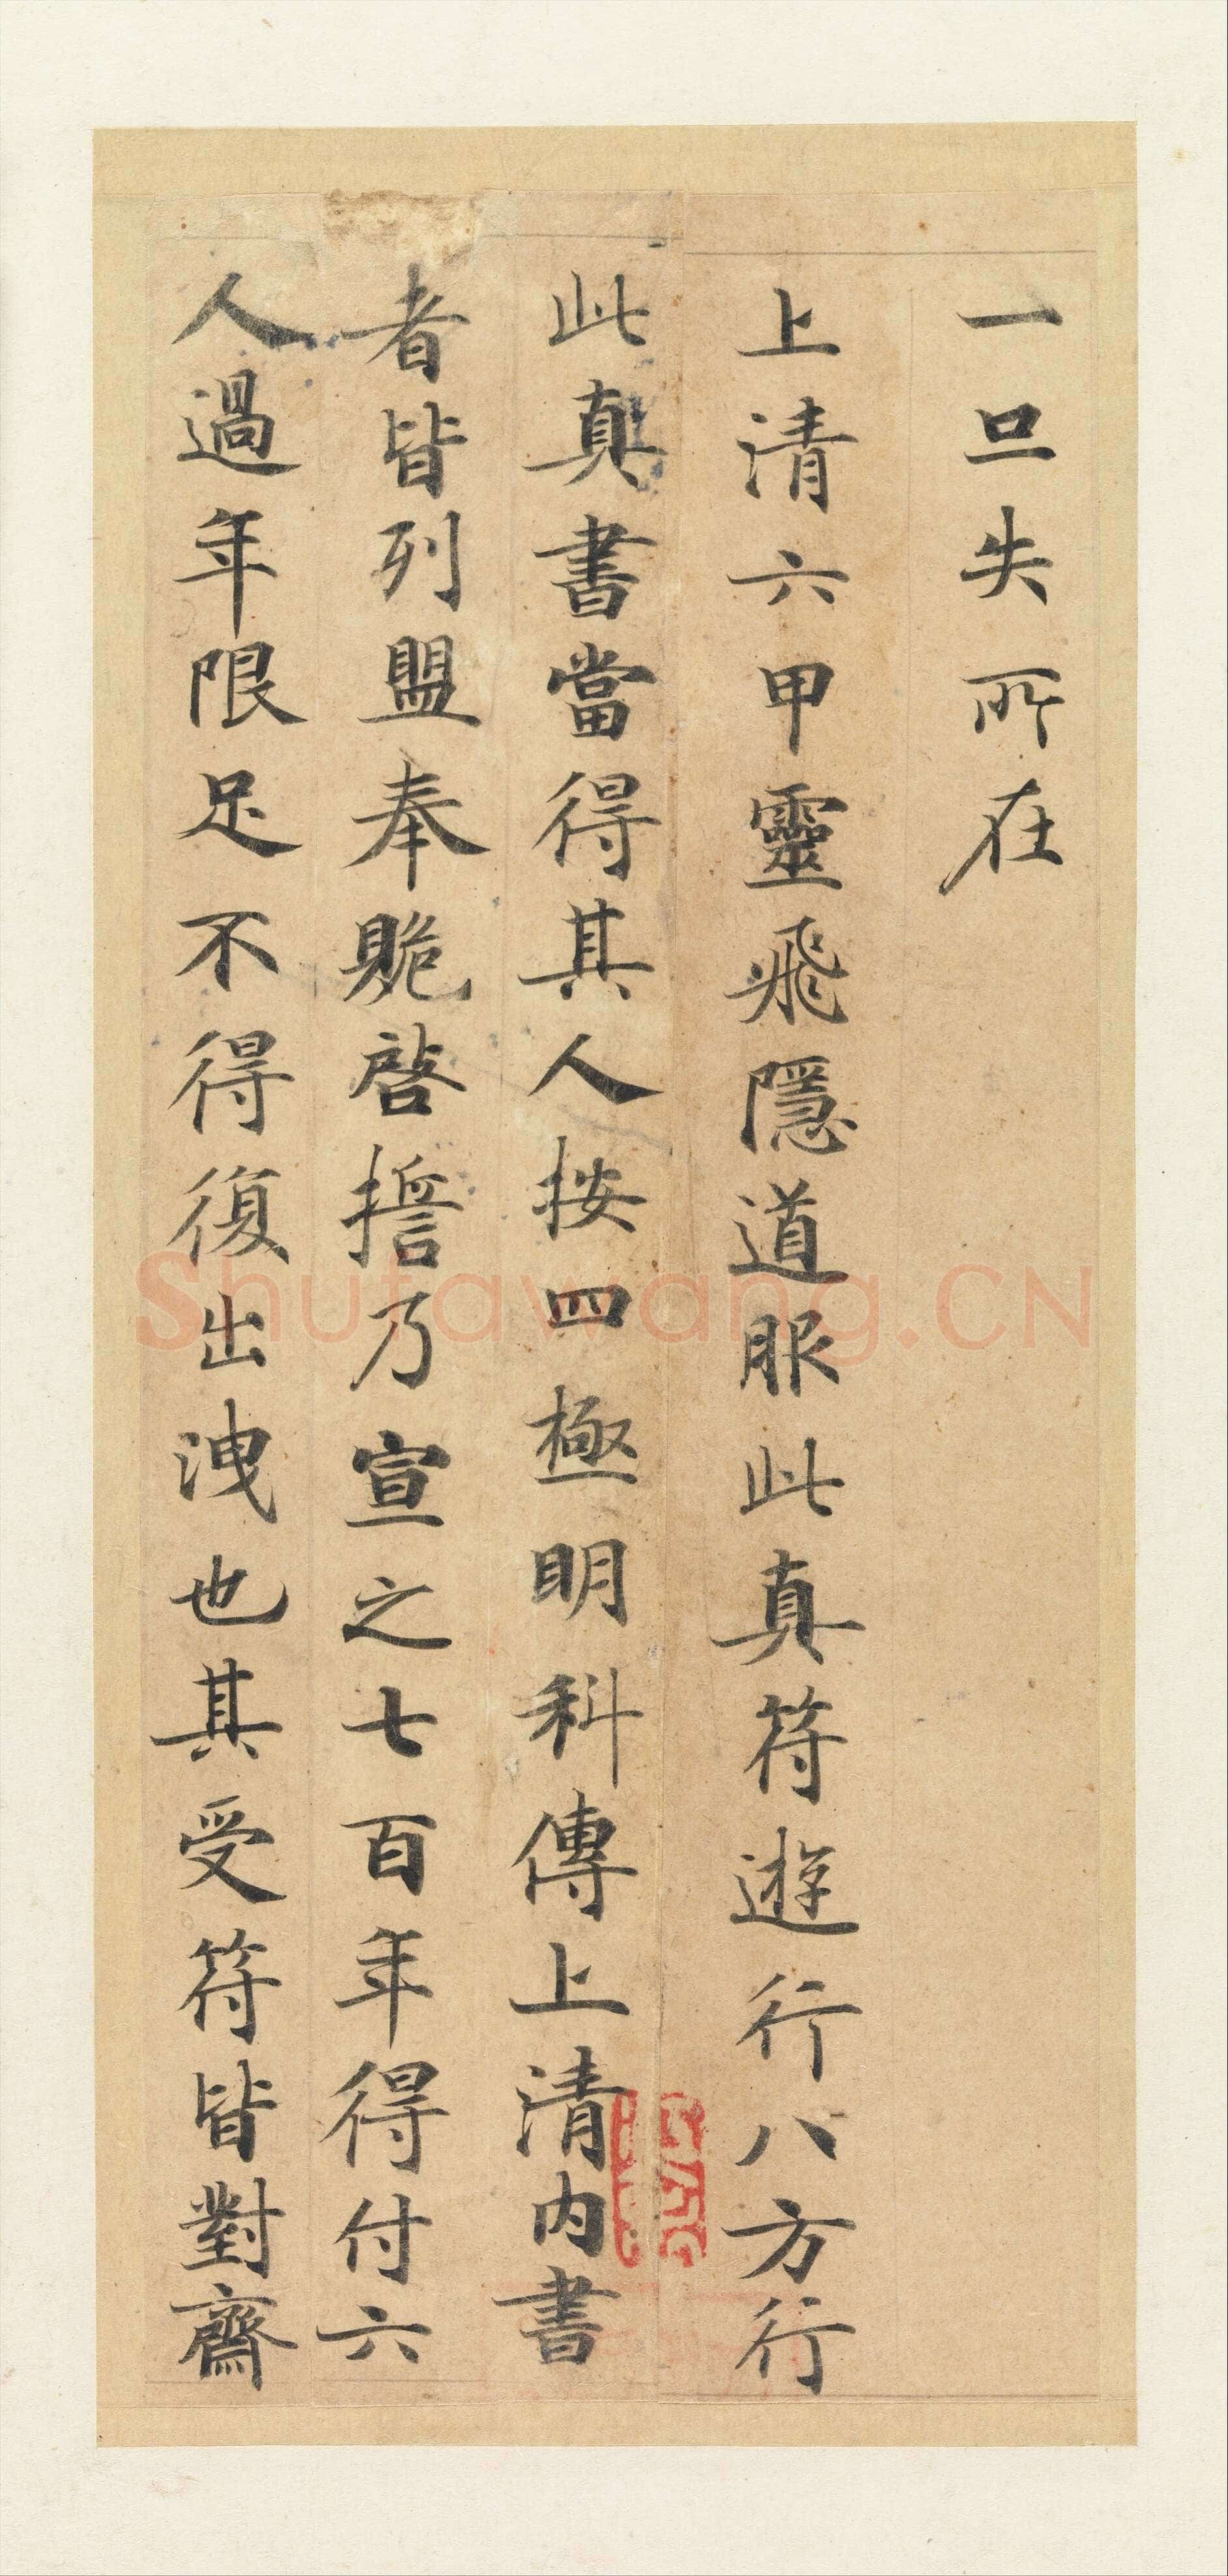 一旦失所在
上清六甲靈飛隱道服此真符遊行八方行
此真書當得其人按四極明科傳上清内書
者皆列盟奉貺啓擔乃宣之七百年得付六
人過年限足不得復出洩也其受符皆對齋
Shufawang.CN